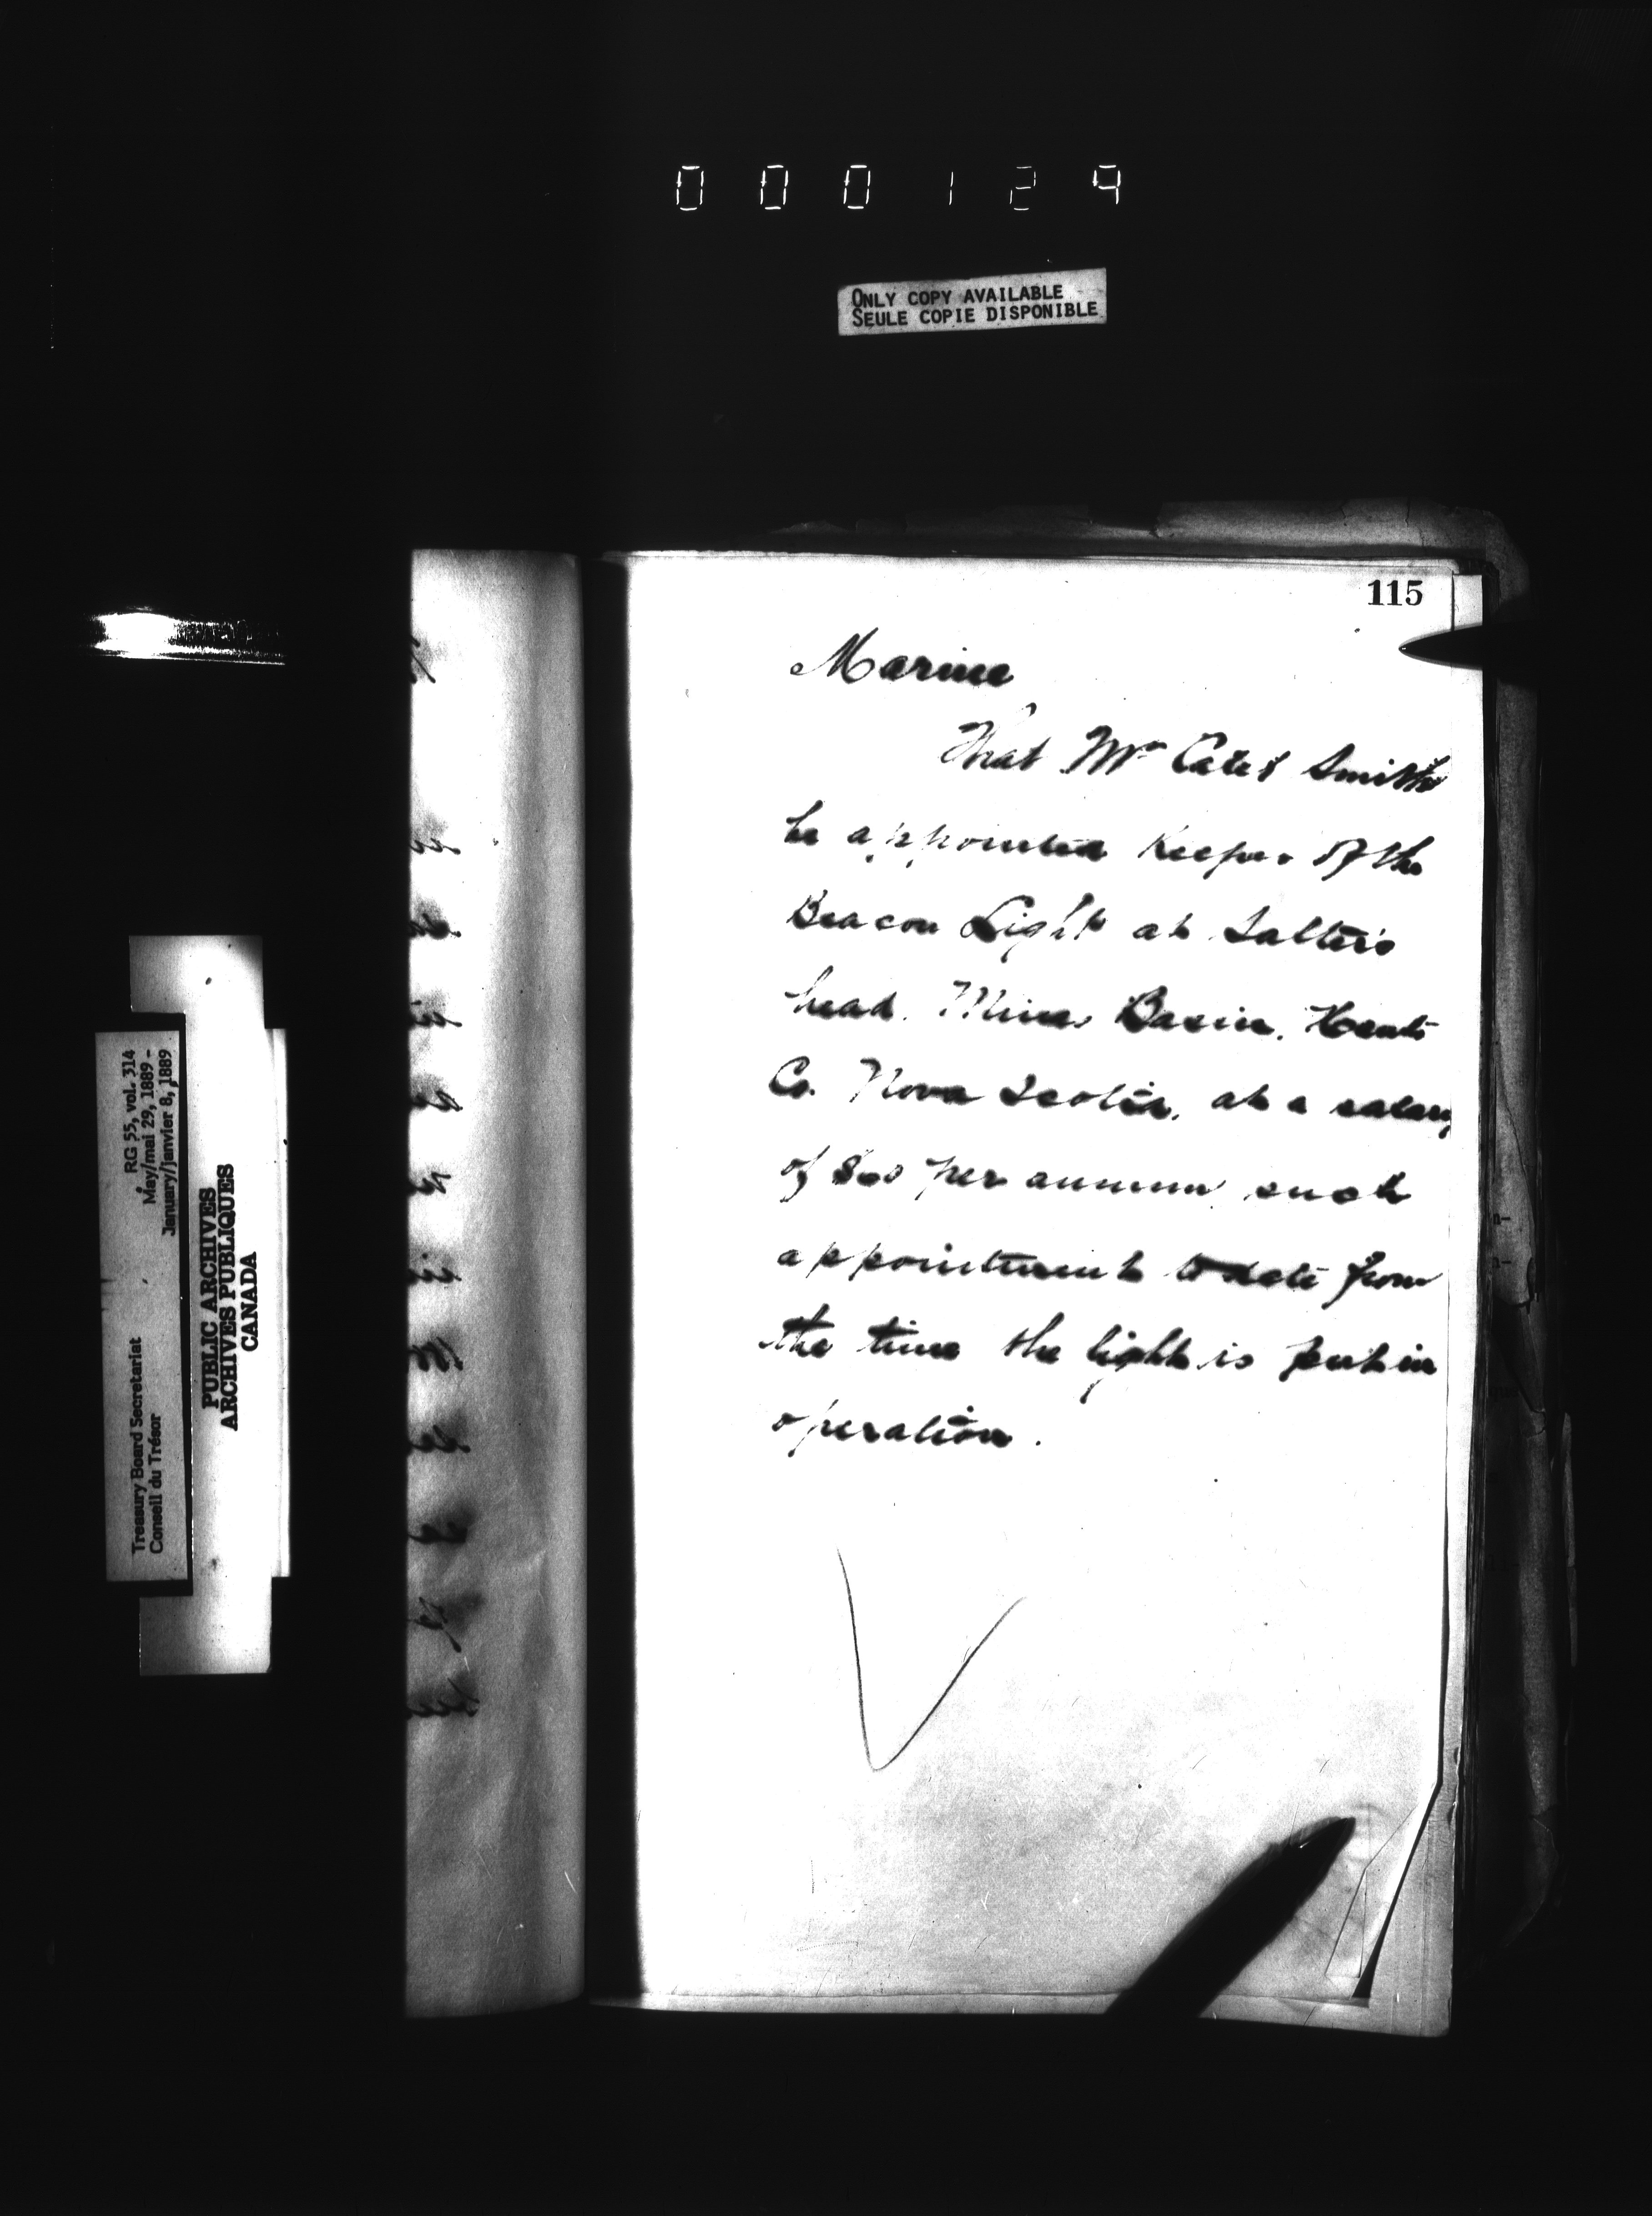 000129
ONLY COPY AVAILABLE
SEULE COPIE DISPONIBLE
115
Marine
That Mr Smith
be appointed Keeper of the
Beacon Light at Salter's
head. Minas Basin. Hants
Co. Nova Scotia, at a salary
of per annum such
appointment to date from
the time the light is put in
operation.
RG 55, vol. 314
May/mai 29, 1889 -
January/janvier 8, 1889
Treasury Board Secretariat
Conseil du Trésor
PUBLIC ARCHIVES
ARCHIVES PUBLIQUES
CANADA